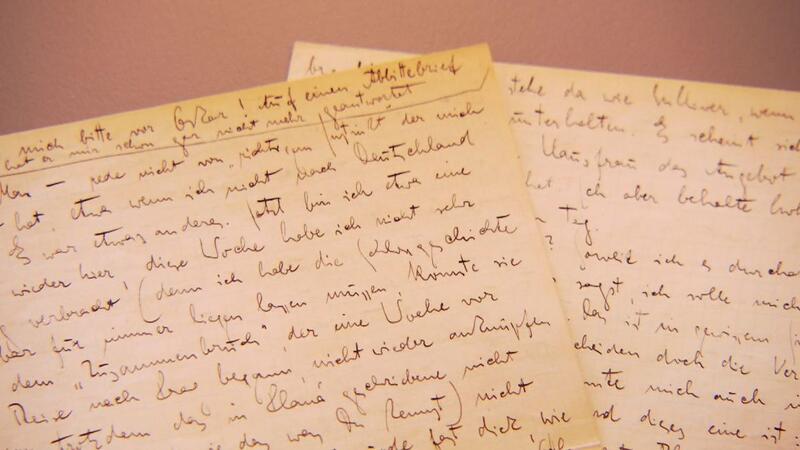 mich bitte vor Oskar! Auf einen Abbittebrief
hat er mir schon gar nicht mehr geantwortet
Max – rede nicht von „ der mich
hat, etwa wenn ich nicht nach Deutschland
Es war etwas anderes. Jetzt bin ich etwa eine
wieder hier, diese Woche habe ich nicht sehr
verbracht (denn ich habe die Schlossgeschichte
bar für immer liegen lassen müssen, konnte sie
dem „Zusammenbruch", der eine Woche vor
Reise nach Prag begann, nicht wieder anknüpfen
trotzdem das in Planá geschriebene nicht
wie das was Du kennst) nicht
fast dick, wie
stehe da wie Gulliver, wenn
unterhalten. Es scheint sich
Hausfrau das Angebot
hat Ich aber behalte
Tag.
ich es durchaus
sagst, ich solle mich
Das ist in gewissem
doch die Ver
mich auch
dieses eine ist: